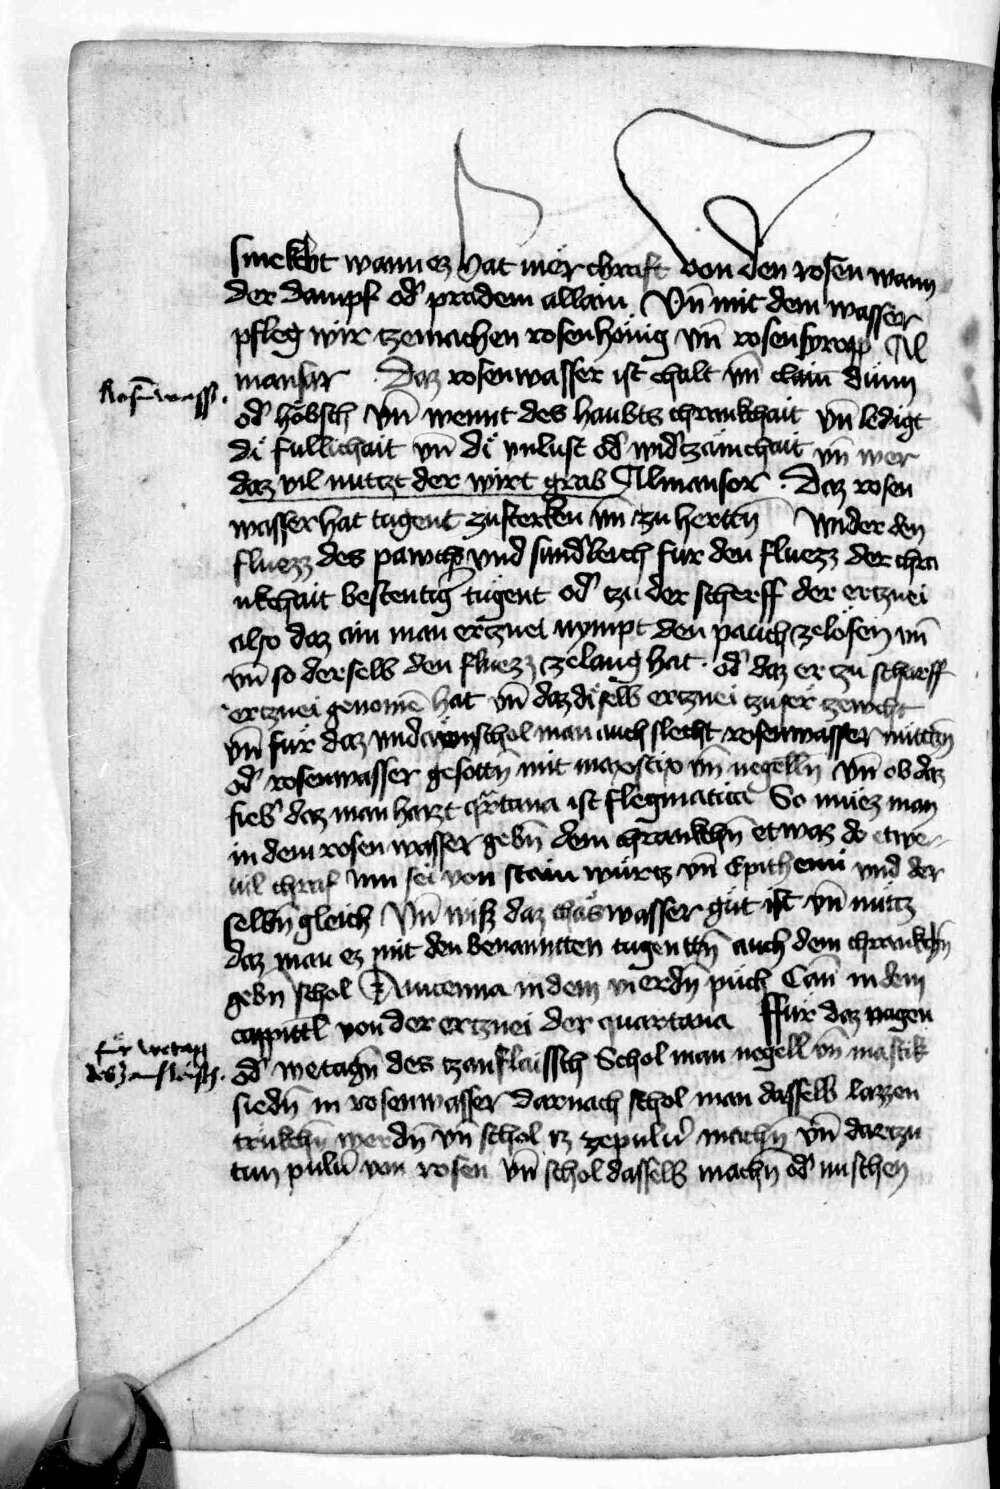 smekcht wann ez hat mer chraft von den rosen wann
der dampf od' pradem allain Vn̄ mit dem wasser
pfleg wir zemachen rosenhönig vn̄ rosensyropp Al
mansar Daz rosenwasser ist chalt vn̄ clain dünn
Rosn̄wass'.
od' höbsch vn̄ wennt des haubts chrankchait vn̄ ledigt
di fullichait vn̄ di vnlust od' wid'zämchait vn̄ wer
daz vil nutzt der wirt grab Almansor. Daz rosen
wasser hat tugent zusterken vn̄ zu hertn̄ Wider den
fluezz des pawchs vnd sund'leich fur den fluezz der chra
nkchait bestentig' tugent od' tzu der scherff der ertznei
also daz ain man ertznei nympt den pauch zelösen vn̄
vn̄ so derselb den fluezz zelang hat. od' daz er tzu scharff
ertznei genomē hat vn̄ daz di selb ertznei tzu ser
vn̄ für daz schol man auch slecht rosenwasser nüttzn̄
od' rosenwasser gesottn̄ mit vn̄ negelln̄ vn̄ ob daz
fieb' daz man haizt q̄rtana ist flegmatica So muez man
in dem rosen wasser gebn̄ dem chrankchn̄ etwaz do etwe
uil chraf inn sei von stain würtz vn̄ Epithemi vnd der
selbn̄ gleich Vn̄ wiss daz wasser güt ist vn̄ nütz
daz man ez mit den benannten tugenttn̄ auch dem chrankchn̄
gebn̄ schol Auicenna in dem vierdn̄ püch Can̄ in dem
cappittl von der ertznei der quartana Ffür daz nagen
für wetag
des zanfleisch.
od' wetagn̄ des tzanflaissch Schol man negell vn̄ mastik
siedn̄ in rosenwasser Darnach schol man dasselb lazzen
trukchn̄ werdn̄ vn̄ schol iz zepulu' machn̄ vn̄ dartzu
tun pulu' von rosen vn̄ schol dasselb machn̄ od' mischen